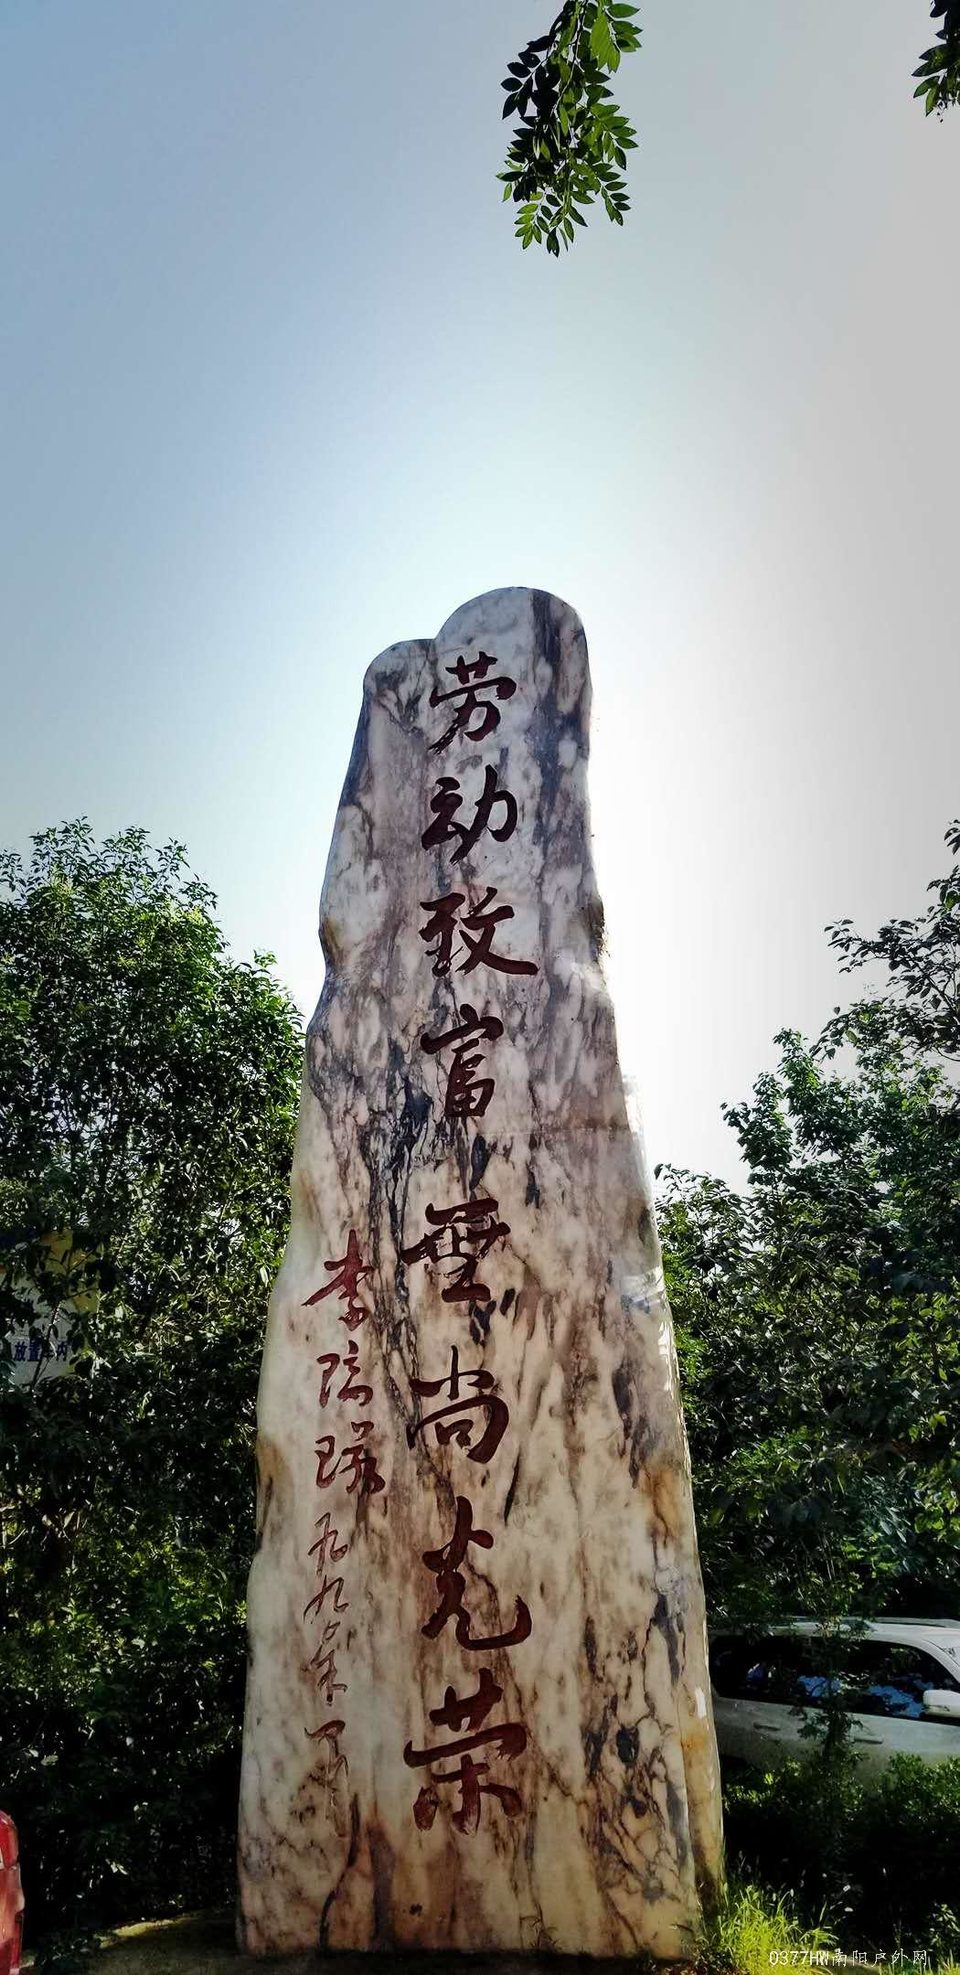 劳动致富無尚光荣
李
九九
放置车内
0377HW南阳户外网